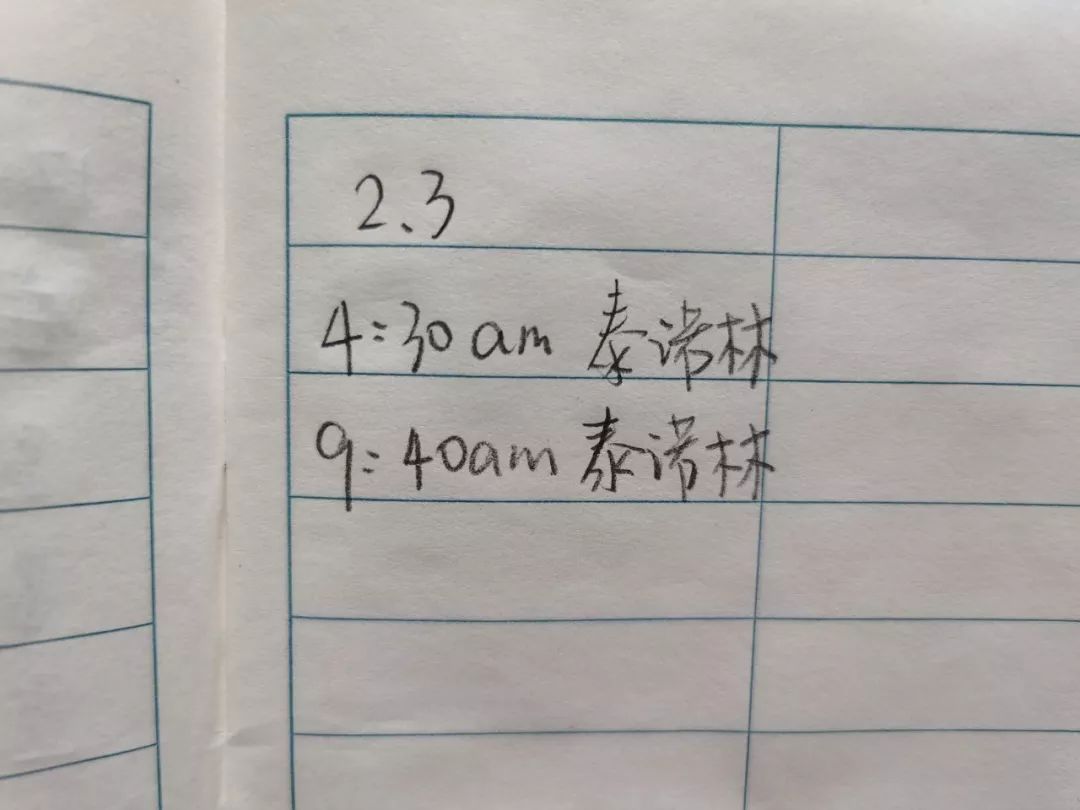 2.3
4:30am 泰诺林
9:40am 泰诺林